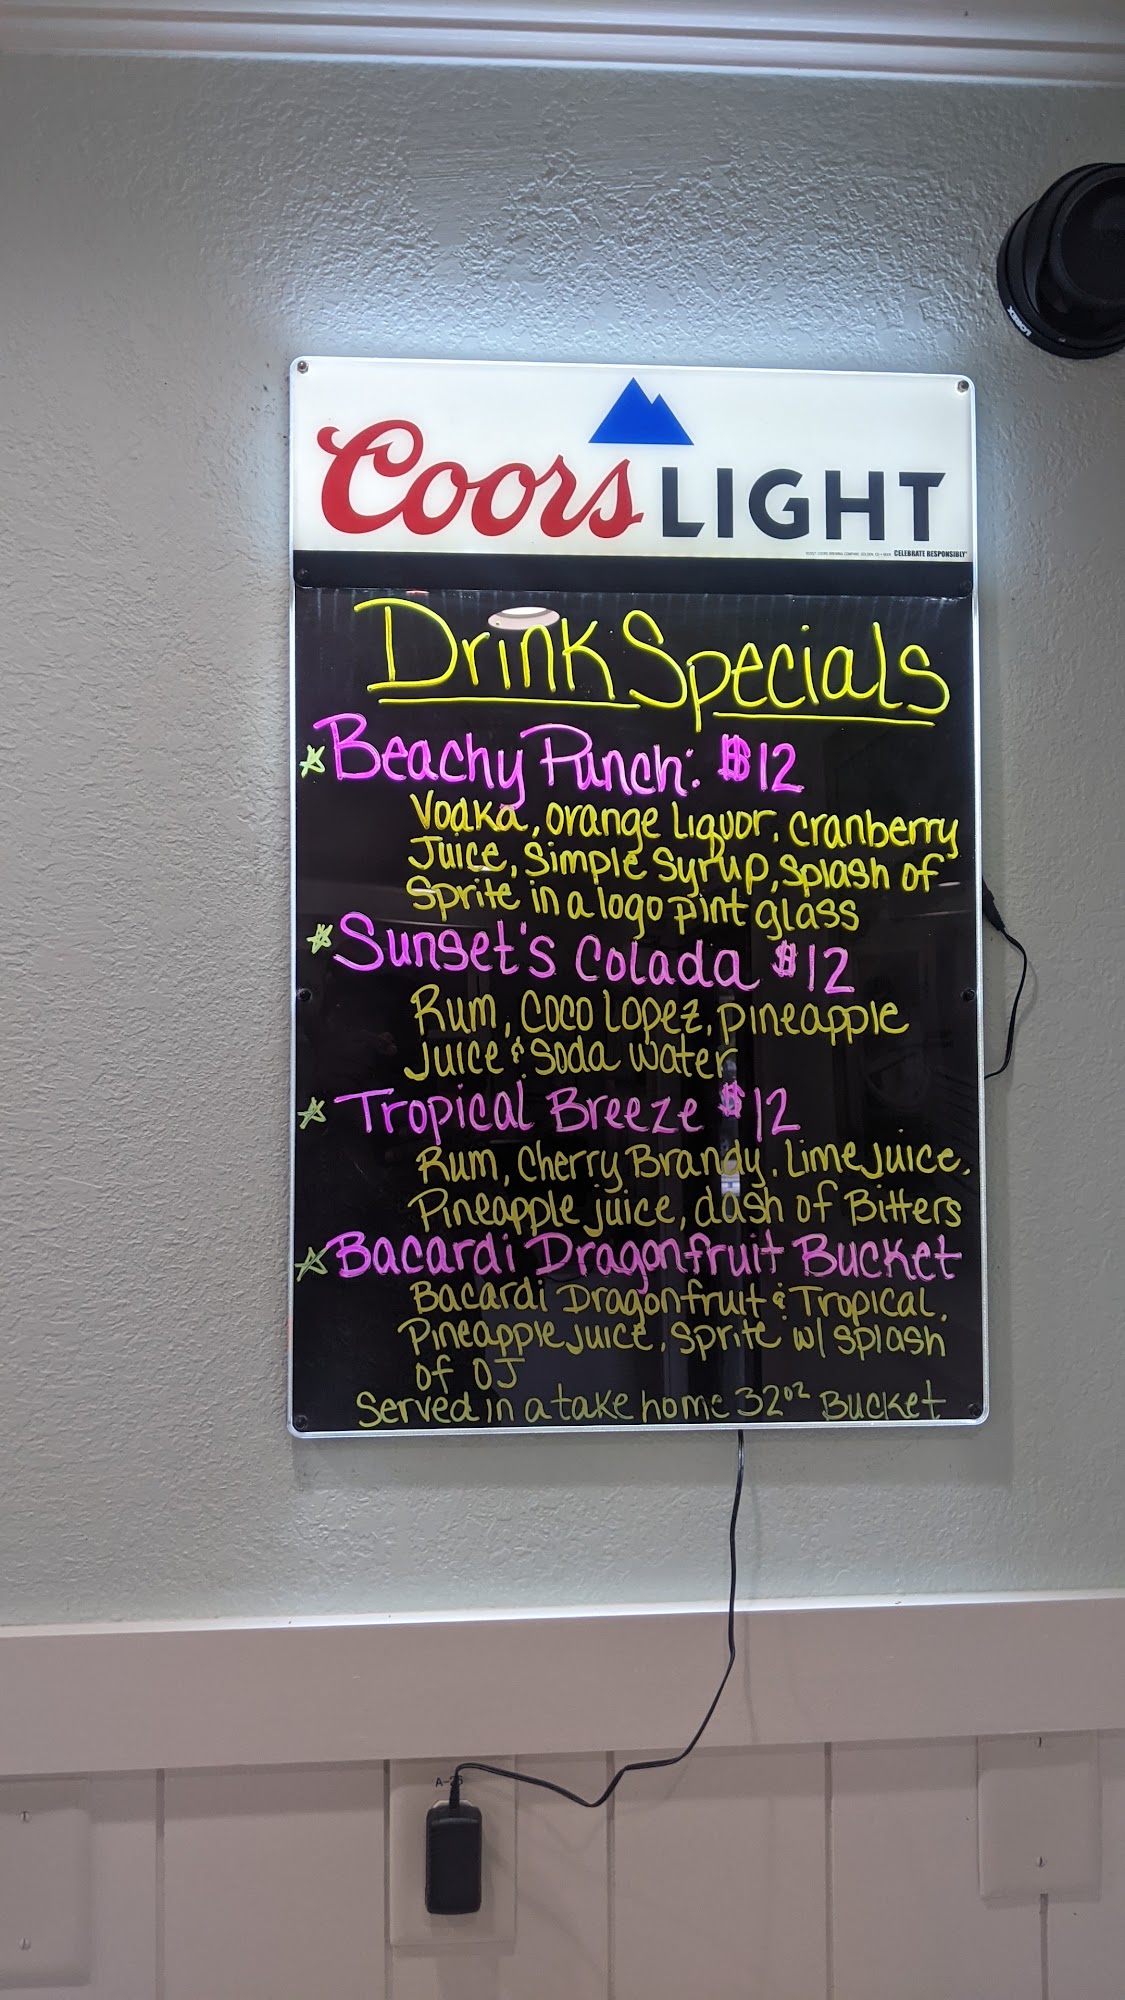 LOREX
Coors LIGHT
©2021 COORS BREWING COMPANY, GOLDEN, CO • BEER CELEBRATE RESPONSIBLY®
Drink Specials
Beachy Punch: $12
Vodka, orange Liquor, cranberry
Juice, simple syrup, splash of
Sprite in a logo pint glass
Sunset's Colada $12
Rum, COCO LOPEZ, pineapple
Juice & Soda water
Tropical Breeze $12
Rum, Cherry Brandy, Lime juice,
Pineapple juice, dash of Bitters
Bacardi Dragonfruit Bucket
Bacardi Dragonfruit & Tropical,
Pineapple juice, sprite w/ splash
of OJ
Served in a take home 32oz Bucket